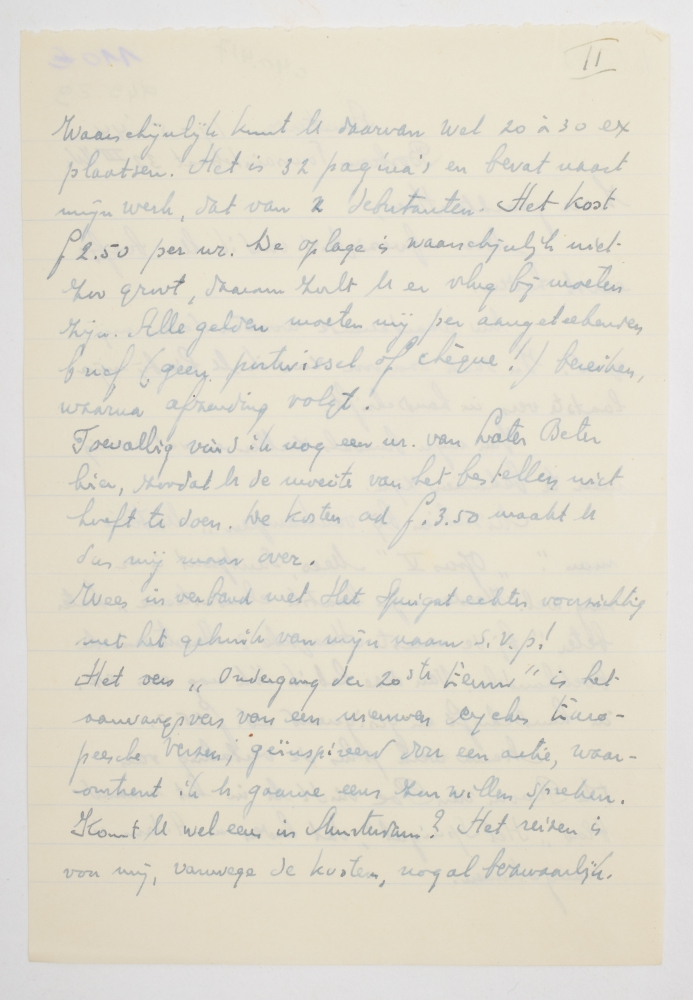 II
Waarschijnlijk kunt U daarvan wel 20 à 30 ex
plaatsen. Het is 32 pagina's en bevat naast
mijn werk, dat van 2 debutanten. Het kost
f 2.50 per nr. De oplage is waarschijnlijk niet
zoo groot, daarom zult U er vlug bij moeten
zijn. Alle gelden moeten mij per aangeteekenden
brief (geen postwissel of chèque!) bereiken,
waarna afzending volgt.
Toevallig vind ik nog een nr. van Later Beter
hier, zoodat U de moeite van het bestellen niet
hoeft te doen. De kosten ad f. 3.50 maakt U
dus mij maar over.
Wees in verband met Het Spuigat echter voorzichtig
met het gebruik van mijn naam s.v.p!
Het vers „Ondergang der 20ste Eeuw" is het
aanvangsvers van een nieuwen cyclus Euro-
peesche Verzen, geïnspireerd door een actie, waar-
omtrent ik U gaarne eens zou willen spreken.
Komt U wel eens in Amsterdam? Het reizen is
voor mij, vanwege de kosten, nogal bezwaarlijk.